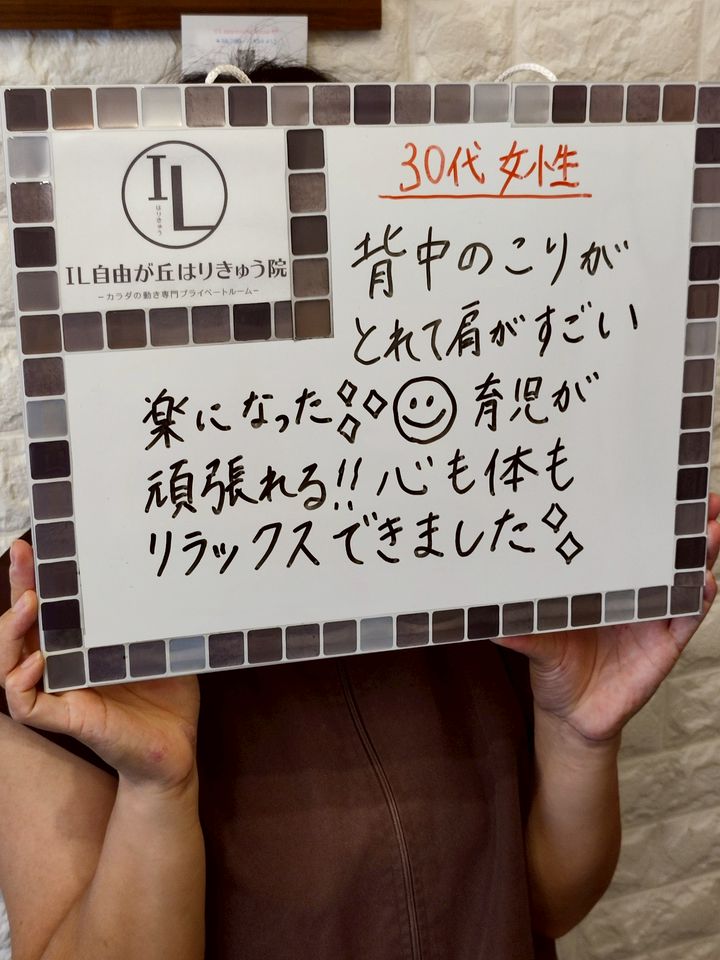 IL
はりきゅう
IL自由が丘はりきゅう院
－カラダの動き専門プライベートルーム－
30代 女性
背中のこりが
とれて肩がすごい
楽になった 育児が
頑張れる!!心も体も
リラックスできました